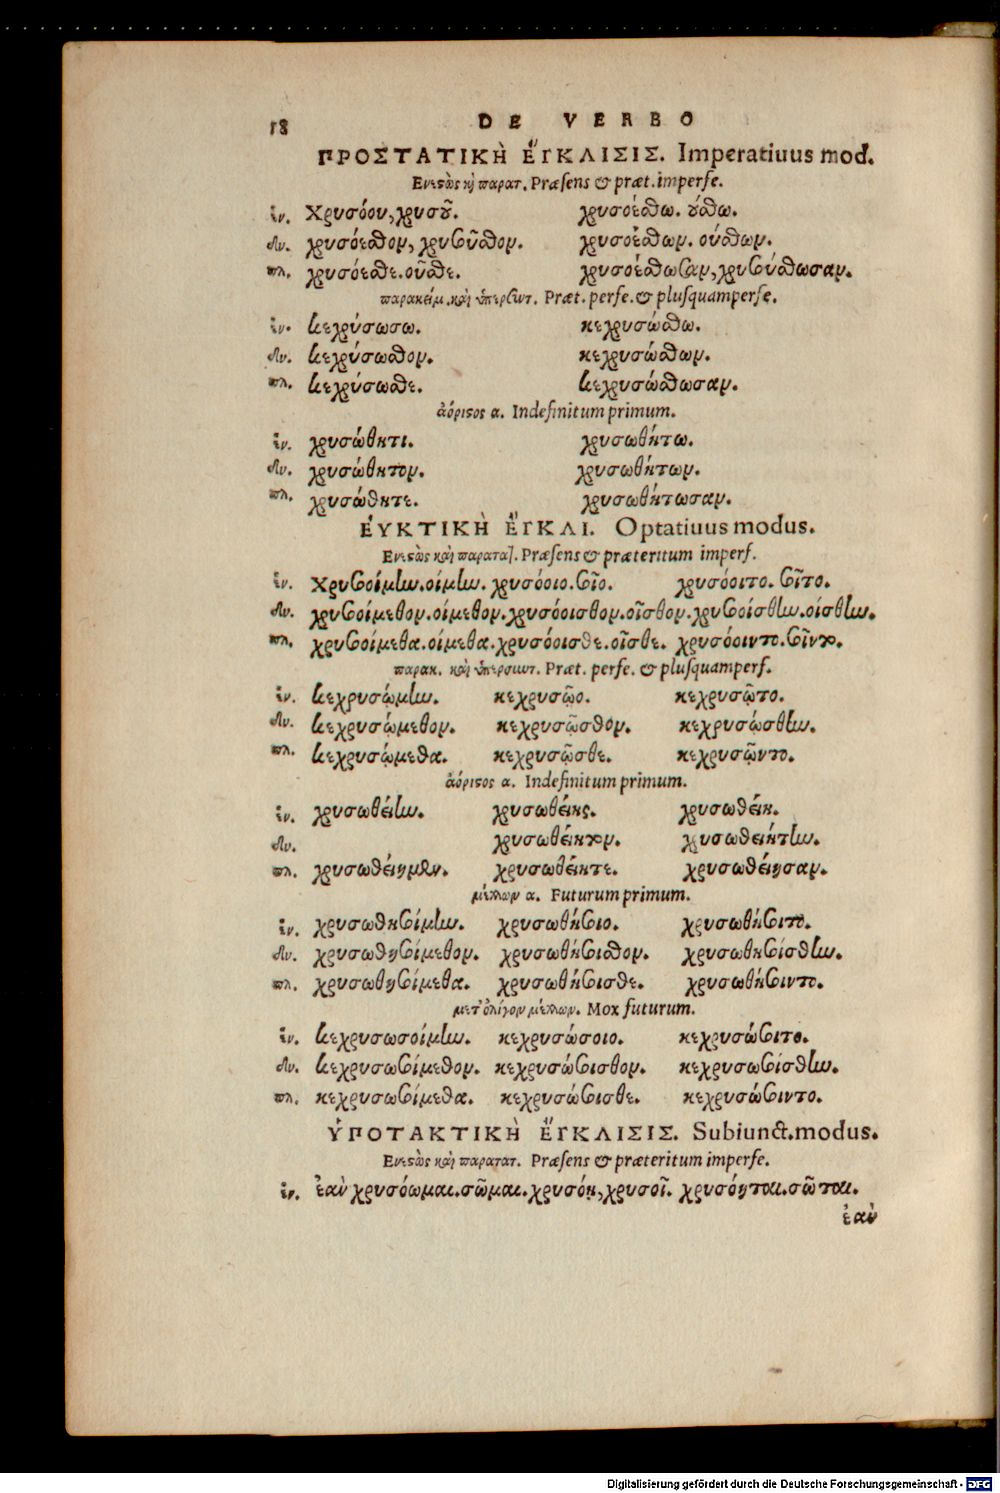 18 DE VERBO
ΠΡΟΣΤΑΤΙΚῊ ἜΓΚΛΙΣΙΣ. Imperatiuus mod.
Ενεϛὼς κὴ παρατ. Præſens & præt. imperfe.
ἑν. Χρυσόου, χρυσοῦ. χρυσοέσθω. ούσθω.
δυ. χρυσόεσθον, χρυσοῦσθον. χρυσοέσθων. ούσθων.
πλ. χρυσόεσθε. οῦσθε. χρυσοέσθωσαν, χρυσούσθωσαν.
παρακείμ. καὶ ὑπερσυντ. Præt. perfe. & pluſquamperfe.
ἑν. κεχρύσωσο. κεχρυσώσθω.
δυ. κεχρύσωσθον. κεχρυσώσθων.
πλ. κεχρύσωσθε. κεχρυσώσθωσαν.
ἀόριϛος α. Indefinitum primum.
ἑν. χρυσώθητι. χρυσωθήτω.
δυ. χρυσώθητον. χρυσωθήτων.
πλ. χρυσώθητε. χρυσωθήτωσαν.
ἘΥΚΤΙΚῊ ἜΓΚΛΙ. Optatiuus modus.
Ενεϛὼς καὶ παρατα]. Præſens & præteritum imperf.
ἑν. Χρυσοοίμην. οίμην. χρυσόοιο. σοῖο. χρυσόοιτο. σοῖτο.
δυ. χρυσοοίμεθον. οίμεθον. χρυσόοισθον. οῖσθον. χρυσοοίσθην. οίσθην.
πλ. χρυσοοίμεθα. οίμεθα. χρυσόοισθε. οῖσθε. χρυσόοιντο. σοῖντο.
παρακ. καὶ ὑπερσυντ. Præt. perfe. & pluſquamperf.
ἑν. κεχρυσῴμην. κεχρυσῷο. κεχρυσῷτο.
δυ. κεχρυσῴμεθον. κεχρυσῷσθον. κεχρυσῴσθην.
πλ. κεχρυσῴμεθα. κεχρυσῷσθε. κεχρυσῷντο.
ἀόριϛος α. Indefinitum primum.
ἑν. χρυσωθείην. χρυσωθείης. χρυσωθείη.
δυ. χρυσωθείητον. χρυσωθειήτην.
πλ. χρυσωθείημεν. χρυσωθείητε. χρυσωθείησαν.
μέλλων α. Futurum primum.
ἑν. χρυσωθησοίμην. χρυσωθήσοιο. χρυσωθήσοιτο.
δυ. χρυσωθησοίμεθον. χρυσωθήσοισθον. χρυσωθησοίσθην.
πλ. χρυσωθησοίμεθα. χρυσωθήσοισθε. χρυσωθήσοιντο.
μετ' ὀλίγον μέλλων. Mox futurum.
ἑν. κεχρυσωσοίμην. κεχρυσώσοιο. κεχρυσώσοιτο.
δυ. κεχρυσωσοίμεθον. κεχρυσώσοισθον. κεχρυσωσοίσθην.
πλ. κεχρυσωσοίμεθα. κεχρυσώσοισθε. κεχρυσώσοιντο.
ὙΠΟΤΑΚΤΙΚῊ ἜΓΚΛΙΣΙΣ. Subiunct. modus.
Ενεϛὼς καὶ παρατατ. Præſens & præteritum imperfe.
ἑν. ἐαν χρυσόωμαι. σῶμαι. χρυσόῃ, χρυσοῖ. χρυσόηται. σῶται.
ἐαν
Digitalisierung gefördert durch die Deutsche Forschungsgemeinschaft - DFG